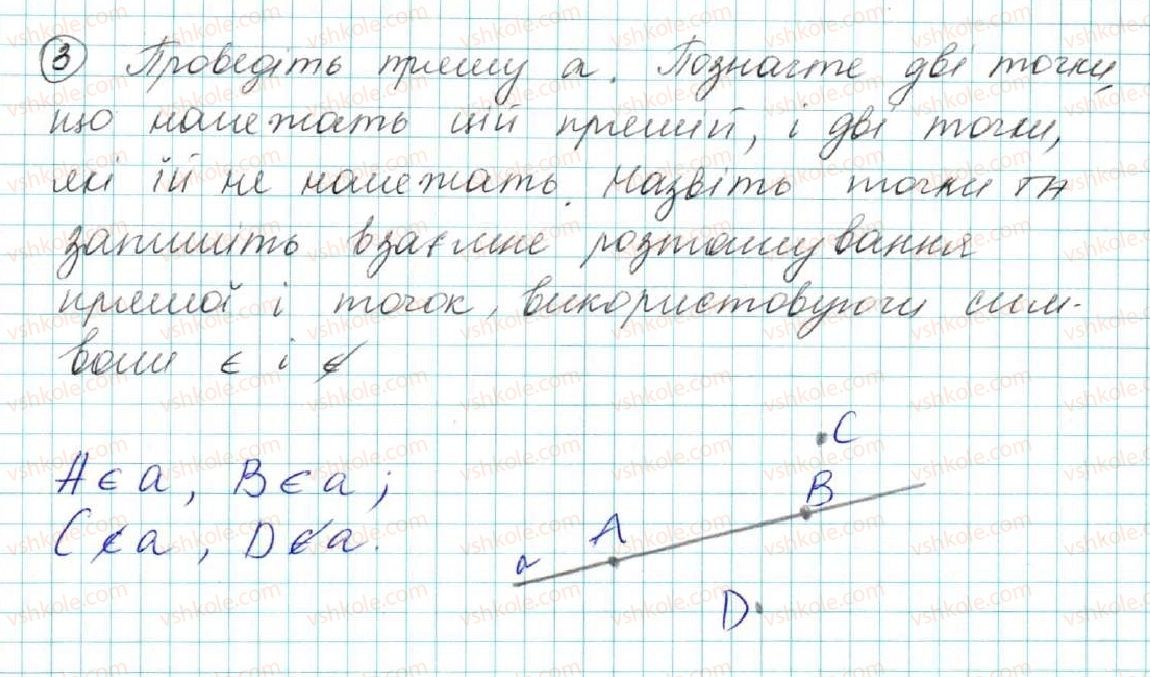 3 Проведіть пряму a. Позначте дві точки,
що належать цій прямій, і дві точки,
які їй не належать. Назвіть точки та
запишіть взаємне розташування
прямої і точок, використовуючи сим-
воли є і ∉
A є a, B є a;
C ∉ a, D ∉ a.
C
B
A
a
D